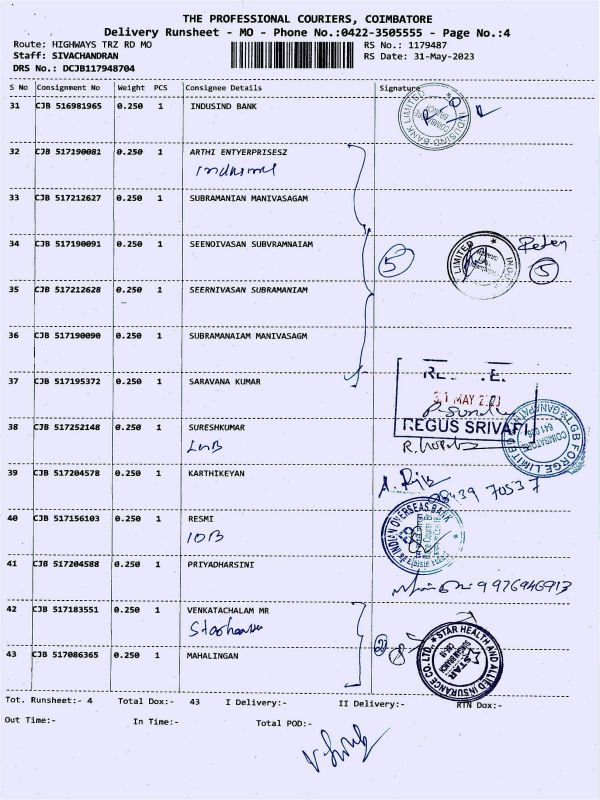 THE PROFESSIONAL COURIERS, COIMBATORE
Delivery Runsheet - MO - Phone No.:0422-3505555 - Page No.:4
Route: HIGHWAYS TRZ RD MO RS No.: 1179487
Staff: SIVACHANDRAN RS Date: 31-May-2023
DRS No.: DCJB117948704
S No Consignment No Weight PCS Consignee Details Signature
31 CJB 516981965 0.250 1 INDUSIND BANK
INDUSIND BANK LIMITED
32 CJB 517190081 0.250 1 ARTHI ENTYERPRISESZ
33 CJB 517212627 0.250 1 SUBRAMANIAN MANIVASAGAM
34 CJB 517190091 0.250 1 SEENOIVASAN SUBVRAMNAIAM
5 LIMITED 5
35 CJB 517212628 0.250 1 SEERNIVASAN SUBRAMANIAM
36 CJB 517190090 0.250 1 SUBRAMANAIAM MANIVASAGM
37 CJB 517195372 0.250 1 SARAVANA KUMAR
MAY
REGUS SRIVARI
38 CJB 517252148 0.250 1 SURESHKUMAR
LGB FORGE LIMITED
COIMBATORE
39 CJB 517204578 0.250 1 KARTHIKEYAN
40 CJB 517156103 0.250 1 RESMI
IOB
INDIAN OVERSEAS BANK
41 CJB 517204588 0.250 1 PRIYADHARSINI
42 CJB 517183551 0.250 1 VENKATACHALAM MR
2
43 CJB 517086365 0.250 1 MAHALINGAN
STAR HEALTH AND ALLIED INSURANCE CO. LTD.
STAR
Tot. Runsheet:- 4 Total Dox:- 43 I Delivery:- II Delivery:- RTN Dox:-
Out Time:- In Time:- Total POD:-